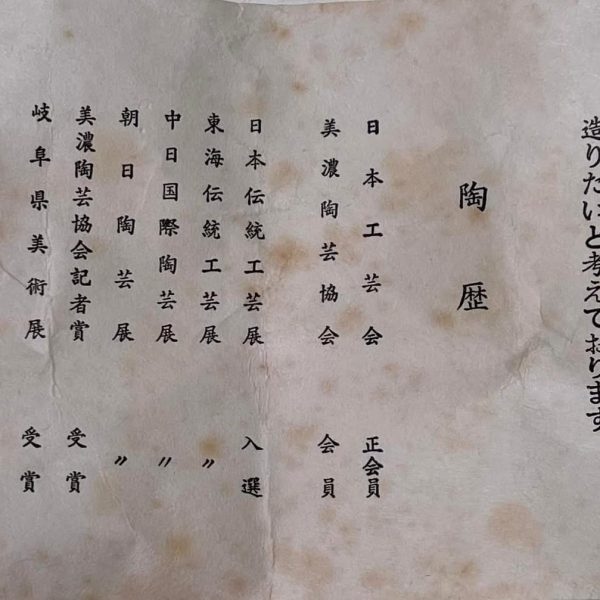 造りたいと考えております
陶歴
日本工芸会 正会員
美濃陶芸協会 会員
日本伝統工芸展 入選
東海伝統工芸展 〃
中日国際陶芸展 〃
朝日陶芸展 〃
美濃陶芸協会記者賞 受賞
岐阜県美術展 受賞